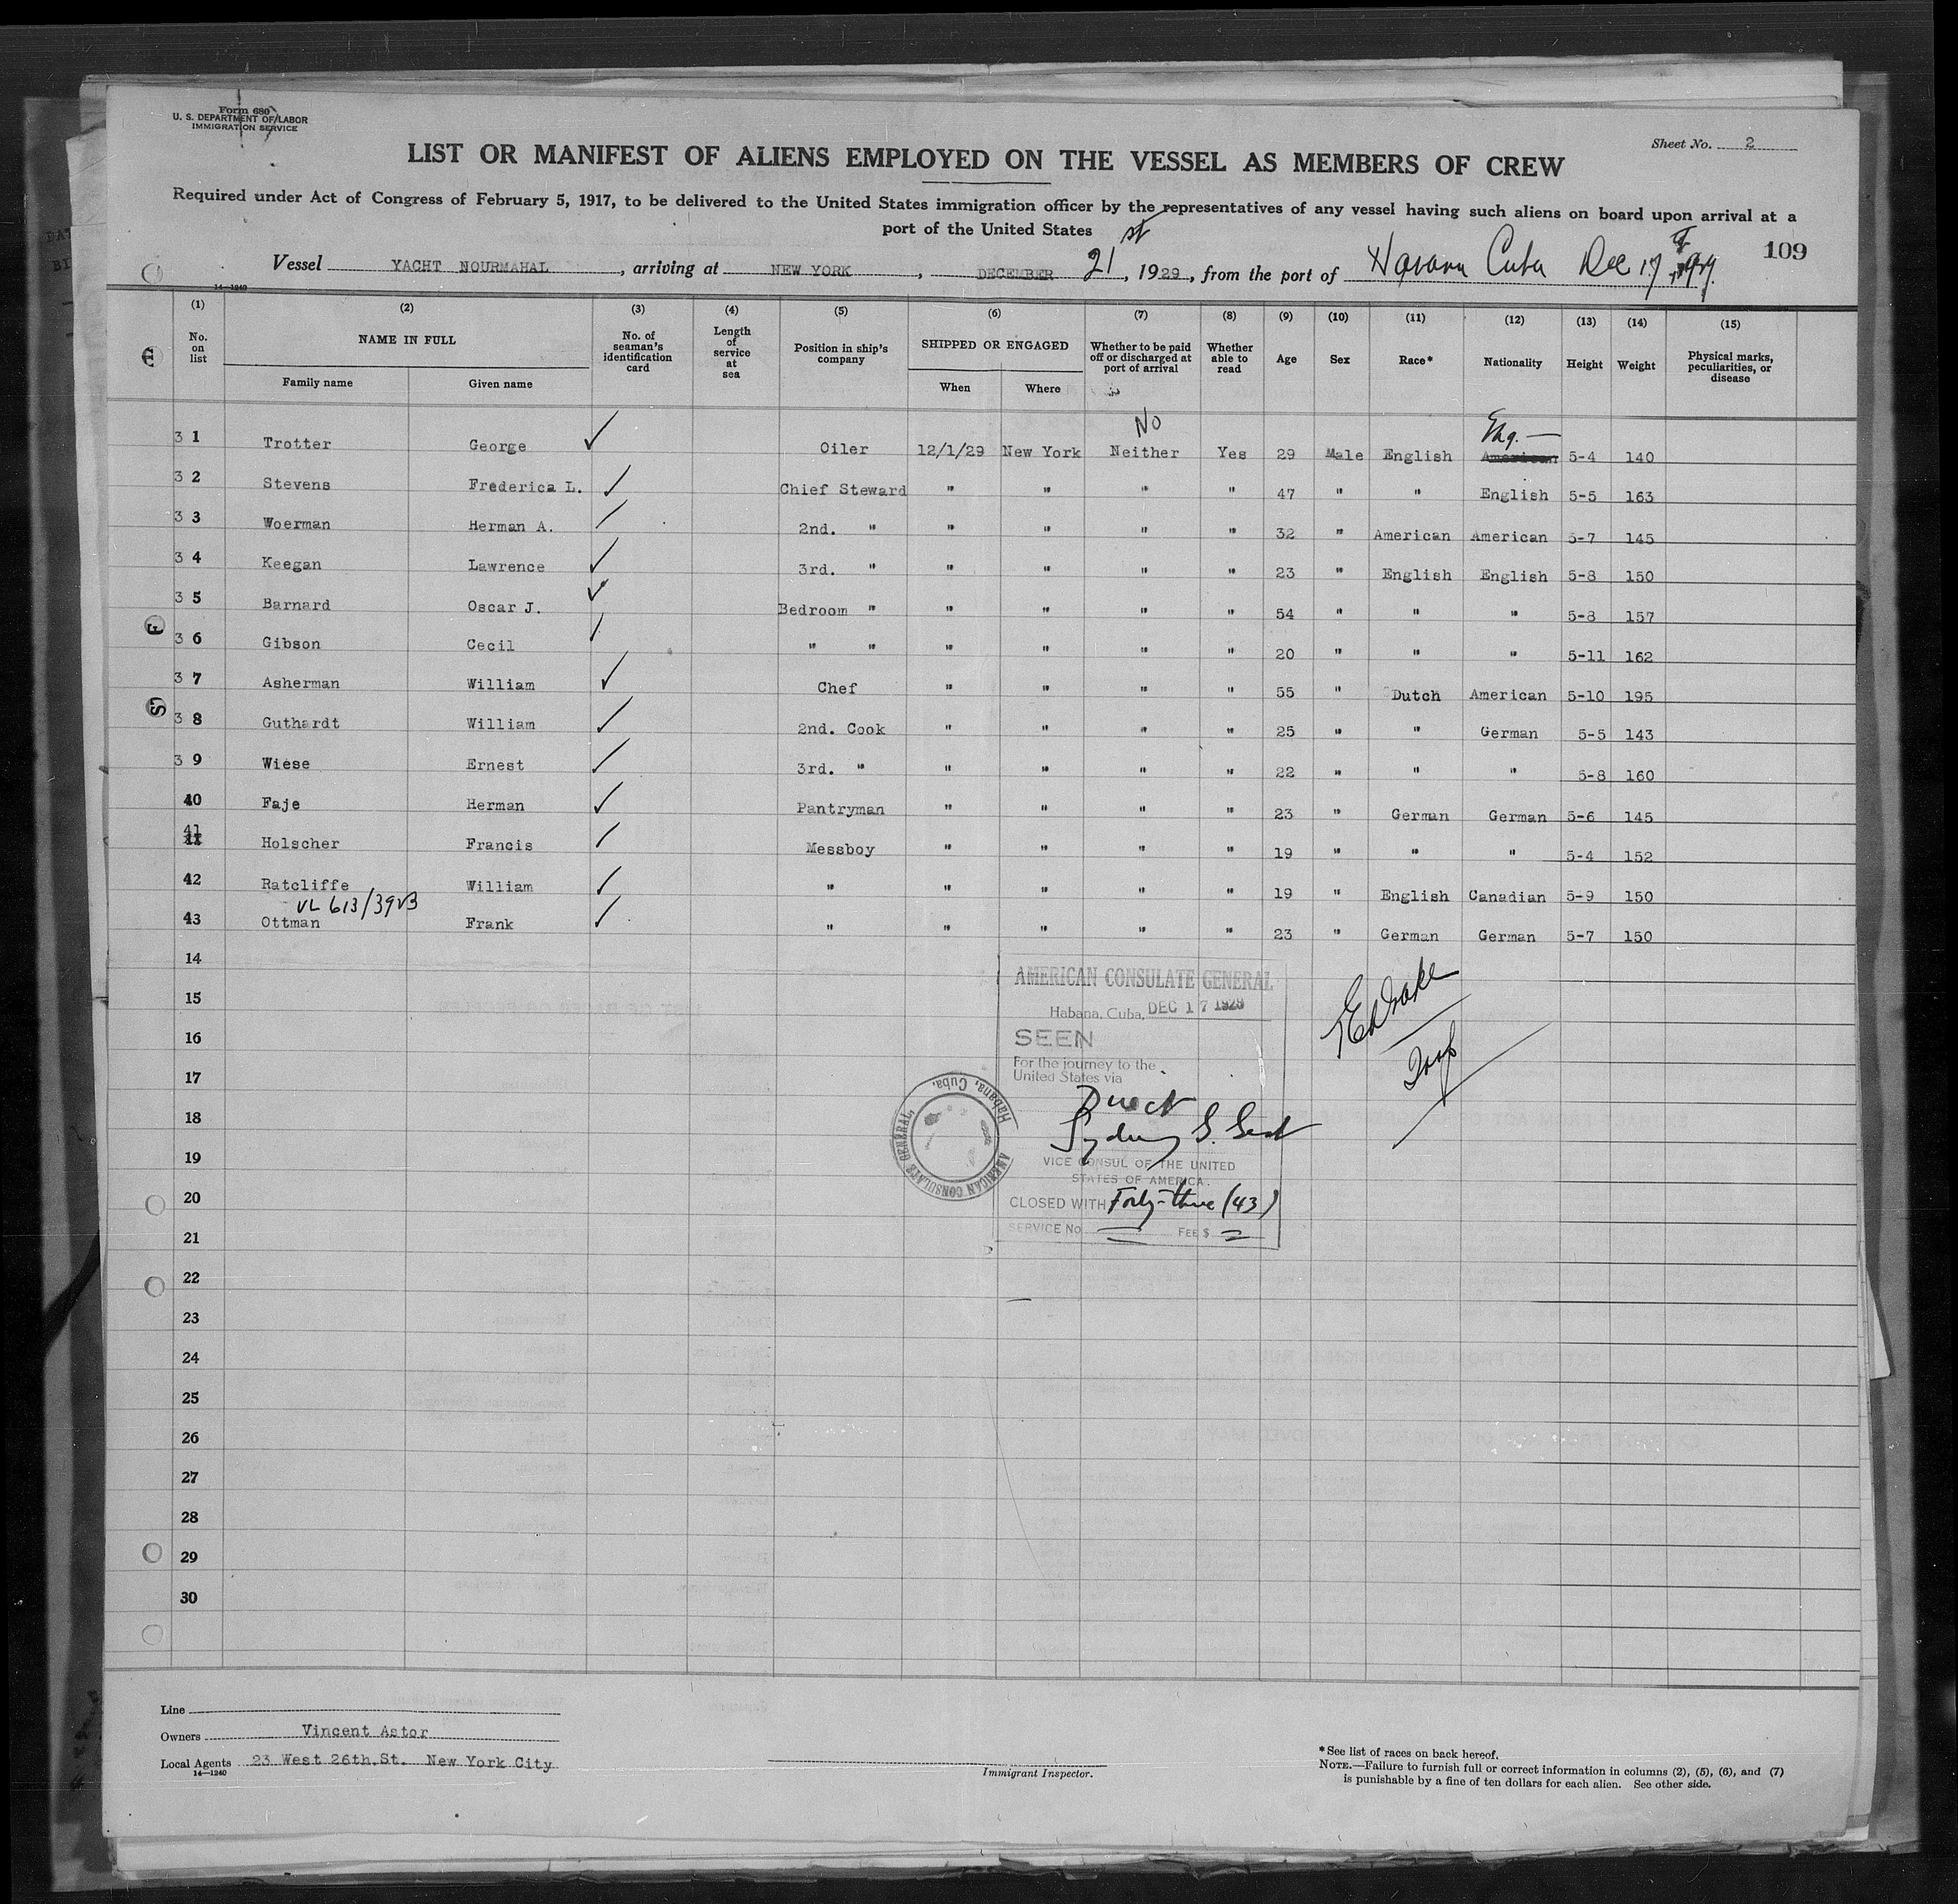 Form 680
U. S. DEPARTMENT OF LABOR
IMMIGRATION SERVICE
Sheet No. 2
LIST OR MANIFEST OF ALIENS EMPLOYED ON THE VESSEL AS MEMBERS OF CREW
Required under Act of Congress of February 5, 1917, to be delivered to the United States immigration officer by the representatives of any vessel having such aliens on board upon arrival at a
port of the United States
Vessel YACHT NOURMAHAL, arriving at NEW YORK, DECEMBER 21st, 1929, from the port of Havana Cuba Dec 17th 1929. 109
14—1240
(1) (2) (3) (4) (5) (6) (7) (8) (9) (10) (11) (12) (13) (14) (15)
No. on list NAME IN FULL Family name Given name No. of seaman's identification card Length of service at sea Position in ship's company SHIPPED OR ENGAGED When Where Whether to be paid off or discharged at port of arrival Whether able to read Age Sex Race* Nationality Height Weight Physical marks, peculiarities, or disease
No Eng. —
3 1 Trotter George ✓ Oiler 12/1/29 New York Neither Yes 29 Male English American 5-4 140
3 2 Stevens Frederica L. ✓ Chief Steward " " " " 47 " " English 5-5 163
3 3 Woerman Herman A. ✓ 2nd. " " " " " 32 " American American 5-7 145
3 4 Keegan Lawrence ✓ 3rd. " " " " " 23 " English English 5-8 150
3 5 Barnard Oscar J. ✓ Bedroom " " " " " 54 " " " 5-8 157
3 6 Gibson Cecil ✓ " " " " " " 20 " " " 5-11 162
3 7 Asherman William ✓ Chef " " " " 55 " Dutch American 5-10 195
3 8 Guthardt William ✓ 2nd. Cook " " " " 25 " " German 5-5 143
3 9 Wiese Ernest ✓ 3rd. " " " " " 22 " " " 5-8 160
40 Faje Herman ✓ Pantryman " " " " 23 " German German 5-6 145
41 Holscher Francis ✓ Messboy " " " " 19 " " " 5-4 152
42 Ratcliffe William ✓ " " " " " 19 " English Canadian 5-9 150
VL 613/39
43 Ottman Frank ✓ " " " " " 23 " German German 5-7 150
14
15
16
17
18
19
20
21
22
23
24
25
26
27
28
29
30
AMERICAN CONSULATE GENERAL
Habana, Cuba, DEC 17 1929
SEEN
For the journey to the
United States via
Direct
VICE CONSUL OF THE UNITED
STATES OF AMERICA.
CLOSED WITH Forty-three (43)
SERVICE No. FEE $
AMERICAN CONSULATE GENERAL, Habana, Cuba.
Line
Owners Vincent Astor
Local Agents 23 West 26th.St. New York City
14—1240
Immigrant Inspector.
*See list of races on back hereof.
NOTE.—Failure to furnish full or correct information in columns (2), (5), (6), and (7)
is punishable by a fine of ten dollars for each alien. See other side.